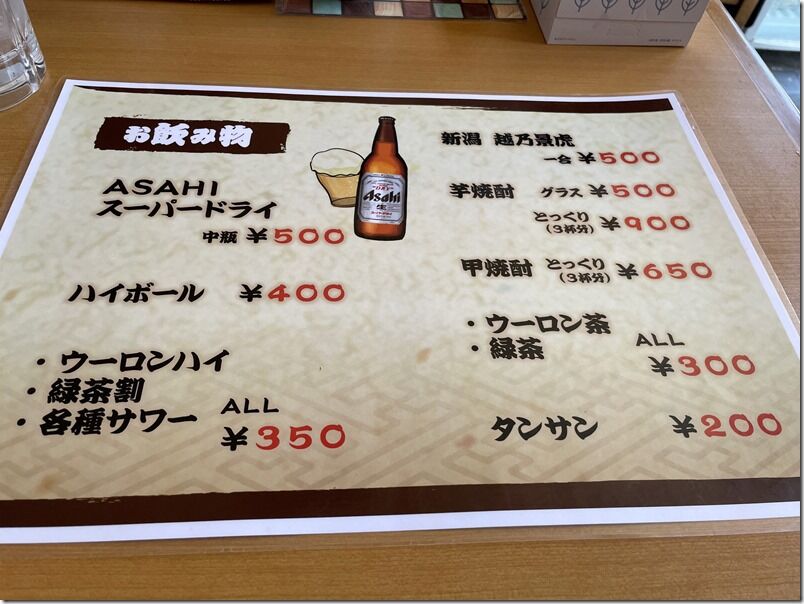 お飲み物
ASAHI
スーパードライ
中瓶 ¥500
Asahi
生
ハイボール ¥400
・ウーロンハイ
・緑茶割
・各種サワー ALL
¥350
新潟 越乃景虎
一合 ¥500
芋焼酎 グラス ¥500
とっくり
(3杯分) ¥900
甲焼酎 とっくり
(3杯分) ¥650
・ウーロン茶
・緑茶 ALL
¥300
タンサン ¥200